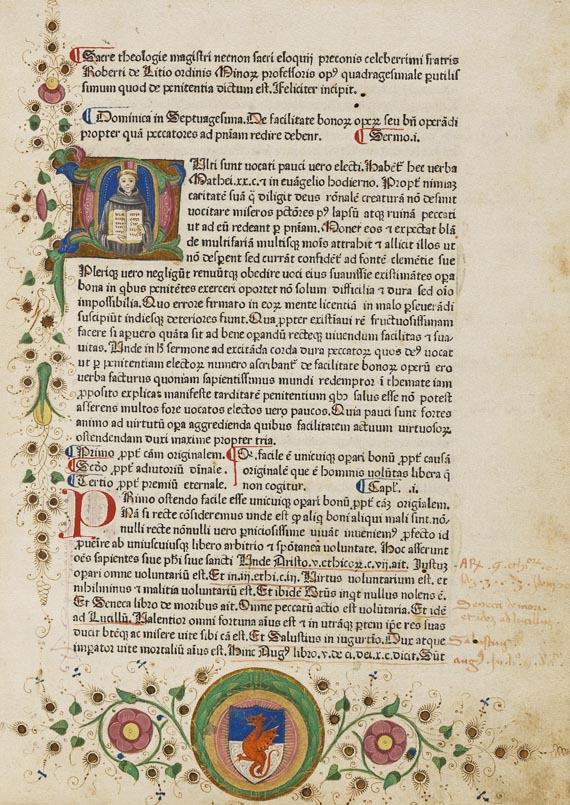 Sacre theologie magistri necnon sacri eloquij preconis celeberrimi fratris
Roberti de Litio ordinis Minoꝝ professoris opꝰ quadragesimale ꝑutilis
simum quod de penitentia dictum est. Feliciter incipit.
Dominica in Septuagesima. De facilitate bonoꝝ opeꝝ seu bñ operãdi
propter quã peccatores ad pñiam redire debent. Sermo.i.
Ulti sunt vocati pauci vero electi. Habẽt hec verba
Mathei.xx.c. ⁊ in evãgelio hodierno. Propt nimiaꝫ
caritatẽ suã q̃ diligit deus rõnalẽ creaturã nõ desinit
vocitare miseros pctõres pꝰ lapsũ atqꝫ ruinã peccati
ut ad eũ redeant ꝑ pñiam. Monet eos ⁊ expectat blã
de multifariã multisqꝫ moïs attrahit ⁊ allicit illos ut
nõ despẽt sed currãt confidẽt ad fontẽ clemẽtie sue
Pleriqꝫ vero negligũt renuũtqꝫ obedire voci eius suavissie existimãtes oꝑa
bona in qbus penitẽtes exerceri oportet nõ solum difficilia ⁊ dura sed oĩo
impossibilia. Quo errore firmato in eoꝝ mente licentiã in malo ꝑseverãdi
suscipiũt indiesqꝫ deteriores fiunt. Qua ꝓpter existiavi rẽ fructuosissimam
facere si aꝑuero quãta sit ad bene oꝑandũ recteqꝫ vivendum facilitas ⁊ sua
vitas. Unde in sermone ad excitãda corda dura peccatoꝝ quos deꝰ vocat
ut ꝑ penitentiam electoꝝ numero ascribant de facilitate bonoꝝ operũ ero
verba facturus quoniam sapientissimus mundi redemptor i themate iam
ꝓposito explicas manifeste tarditatẽ penitentium qbꝫ salus esse nõ potest
asserens multos fore vocatos electos vero paucos. Quia pauci sunt fortes
animo ad virtutũ oꝑa aggredienda quibus facilitatem actuum virtuosoꝝ
ostendendam duxi maxime propter tria.
Primo ꝓpt cãm originalem.
Scďo ꝓpt adiutoriũ divinale.
Tertio ꝓpt premiũ eternale.
Qꝫ facile ẽ unicuiqꝫ oꝑari bonũ ꝓpt causã
originalẽ que ẽ hominis volũtas libera q̃
non cogitur. Capľ. .i.
PRimo ostendo facile esse unicuiqꝫ oꝑari bonũ ꝓpt cãꝫ origialem.
Nã si recte cõsideremus unde est ꝙ aliq boni aliqui mali sunt.nõ
nulli recte nõnulli vero ꝑniciosissime vivãt inveniem ꝓfecto id
ꝓueire ab uniuscuiusqꝫ libero arbitrio ⁊ spõtanea voluntate. Hoc asserunt
oẽs sapientes sive phi sive sancti Unde Aristo.v.ethicoꝝ.c.vij.ait. Iustus
oꝑari omne voluntariũ est. Et in.iij.ethi.c.ij. Virtus voluntarium est. et
nihilminus ⁊ malitia voluntariũ est. Et ibidẽ btũs inqt nullus nolens ẽ.
Et Seneca libro de moribus ait. Omne peccatũ actio est volũtaria. Et idẽ
ad Lucillũ. Valentior omni fortuna aiũs est ⁊ in utrãqꝫ ptem ipe res suas
ducit btẽqꝫ ac misere vite sibi cã est. Et Salustius in iugurtio. Dux atque
imꝑator vite mortaliũ aiũs est. Hinc Augꝰ libro.v.de ci.dei.x.c.dicit. Sũt